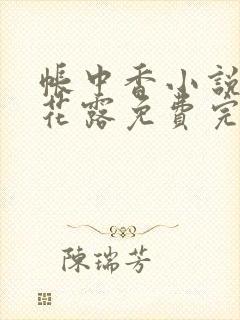 帳中香小說
花露免費完
陳瑞芳